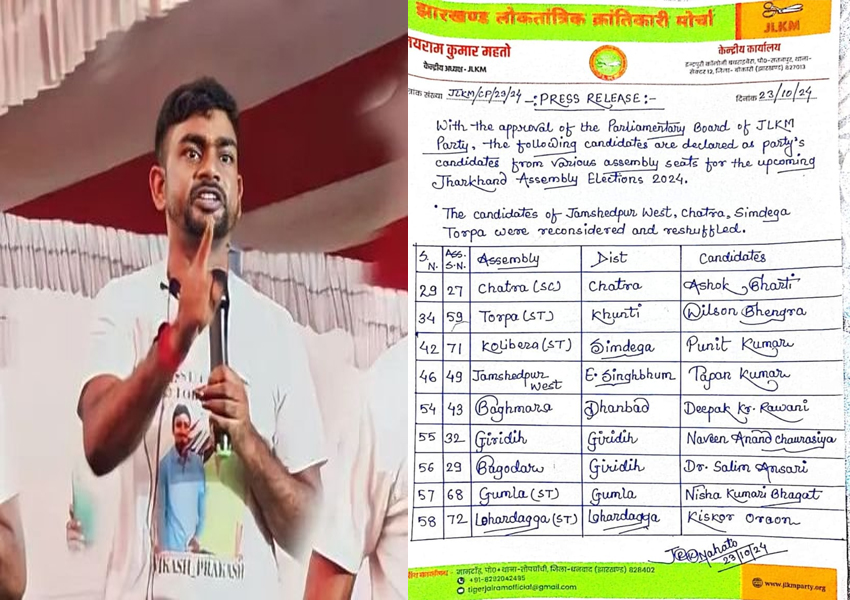 VIKASH_PRAKASH
झारखण्ड लोकतांत्रिक क्रांतिकारी मोर्चा
JLKM
यराम कुमार महतो
केन्द्रीय अध्यक्ष - JLKM
केन्द्रीय कार्यालय
सेक्टर 12, जिला- बोकारो (झारखण्ड) 827013
संख्या JLKM/CP/29/24 -: PRESS RELEASE:- दिनांक 23/10/24
With the approval of the Parliamentary Board of JLKM
Party, the following candidates are declared as party's
candidates from various assembly seats for the upcoming
Jharkhand Assembly Elections 2024.
• The candidates of Jamshedpur West, Chatra, Simdega
Torpa were reconsidered and reshuffled.
S. N. Ass. S.N. Assembly Dist Candidates
29 27 Chatra (SC) Chatra Ashok Bharti
34 59 Torpa (ST) Khunti Wilson Bhengra
42 71 Kolibera (ST) Simdega Punit Kumar
46 49 Jamshedpur West E. Singhbhum Tapan Kumar
54 43 Baghmara Dhanbad Deepak Kr. Rawani
55 32 Giridih Giridih Naveen Anand chaurasiya
56 29 Bagodar Giridih Dr. Salim Ansari
57 68 Gumla (ST) Gumla Nisha Kumari Bhagat
58 72 Lohardagga (ST) Lohardagga Kiskor Oraon
23/10/24
जिला-धनवाद (झारखण्ड) 828402
+91-8292042495
tigerjairamofficial@gmail.com
www.jlkmparty.org